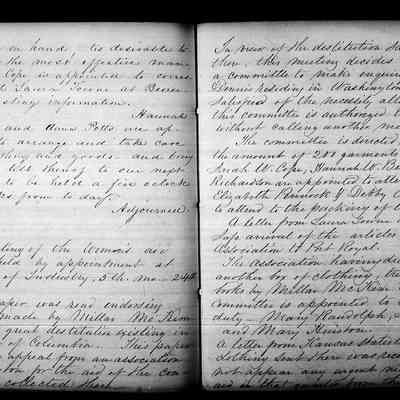 on hand, tis desirable to
the most effective man
Cope is appointed to corres
Laura Towne at Beau
sting information.
Hannah
and Anna Potts are ap
to arrange and take care
thing and goods - and bring
of them to our next
to be held a five oclock
from to day.
Adjourned.
ting of the Womens aid
held by appointment at
of Friends, 5th mo. 24th
paper was read endorsing
made by Millar Mc Kim
great destitution existing in
of Columbia. This paper
appeal from an association
for the aid of the con
collected there
In view of the destitution
there, this meeting decides
a committee to make enquiri
Dennis residing in Washington
satisfied of the necessity
this committee is authorized
without calling another me
The committee is directed
the amount of 200 garments
Sarah W. Cope, Hannah W. R
Richardson are appointed to
Elizabeth Pennock & Debby C
to attend to the packing of
A letter from Laura Towne
safe arrival of the articles
Association at Port Royal.
The Association having
another box of clothing, the
books by Millar Mc Kim
Committee is appointed to
duty - Mary Randolph,
and Mary Kimson.
A letter from Kansas stated
clothing sent there was rece
not appear any urgent nee
aid in that quarter from the